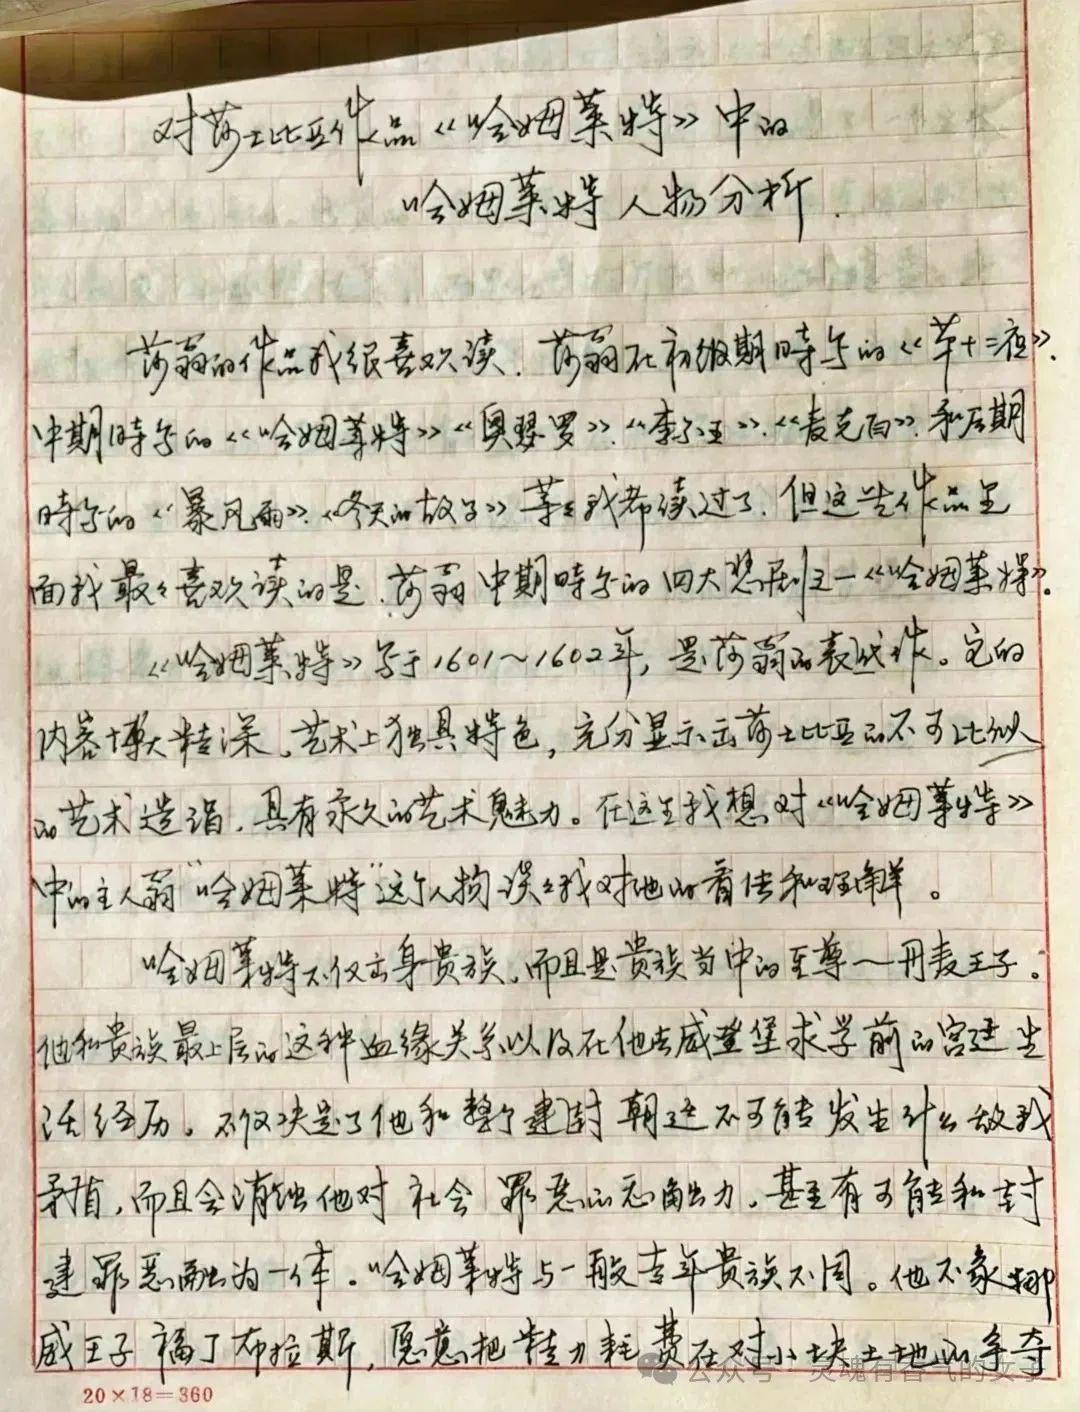 对莎士比亚作品《哈姆莱特》中的
哈姆莱特人物分析.
莎翁的作品我很喜欢读.莎翁在初级期時写的《第十二夜》.
中期時写的《哈姆莱特》《奥瑟罗》.《李尔王》.《麦克白》.和后期
時写的《暴风雨》.《冬天的故事》等等我都读过了.但这些作品里
面我最最喜欢读的是.莎翁中期時写的四大悲剧之一《哈姆莱特》.
《哈姆莱特》写于1601～1602年,是莎翁的表代作。它的
内容博大精深.艺术上独具特色,充分显示出莎士比亚的不可比拟
的艺术造诣.具有永久的艺术魅力。在这里我想对《哈姆莱特》
中的主人翁"哈姆莱特"这个人物谈谈我对他的看法和理解。
哈姆莱特不仅出身贵族.而且是贵族当中的至尊—丹麦王子.
他和贵族最上层的这种血缘关系以及在他去威登堡求学前的宫廷生
活经历.不仅决定了他和整个建封朝廷不可能发生什么敌我
矛盾,而且会消蚀他对社会罪恶的 力.甚至有可能和封
建罪恶融为一体.哈姆莱特与一般青年贵族不同。他不象挪
威王子福丁布拉斯,愿意把精力耗费在对小块土地的争夺
20×18=360
公众号·灵魂有香气的女子